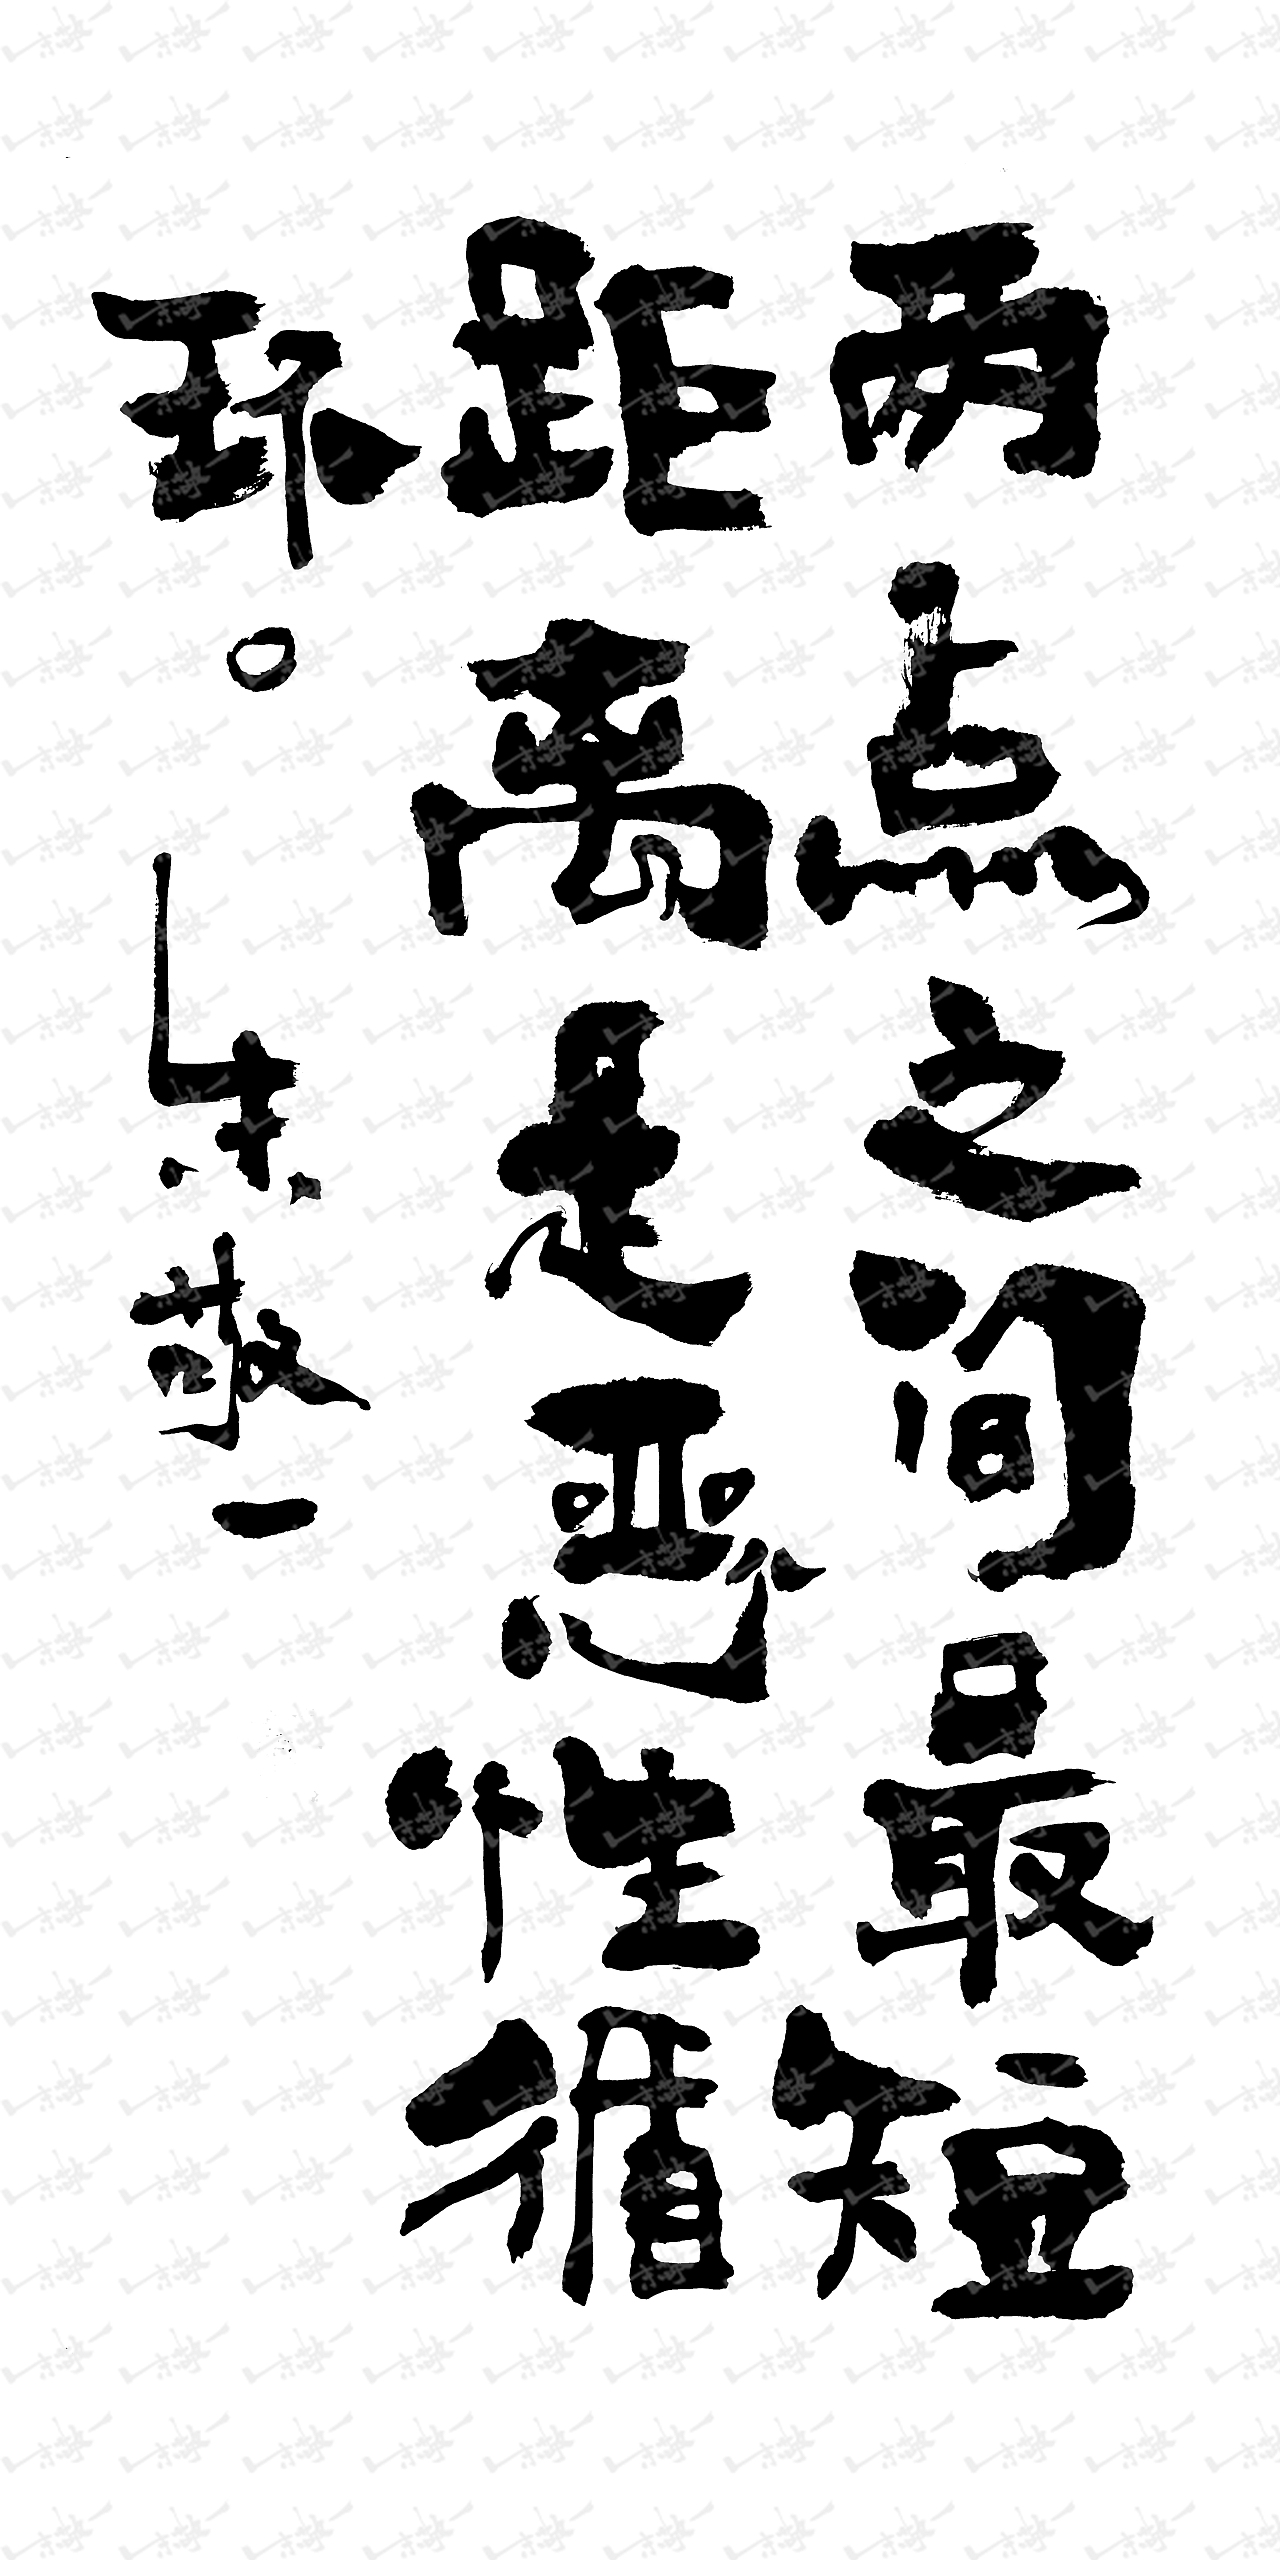 两点之间最短
距离是恶性循
环。朱敬一